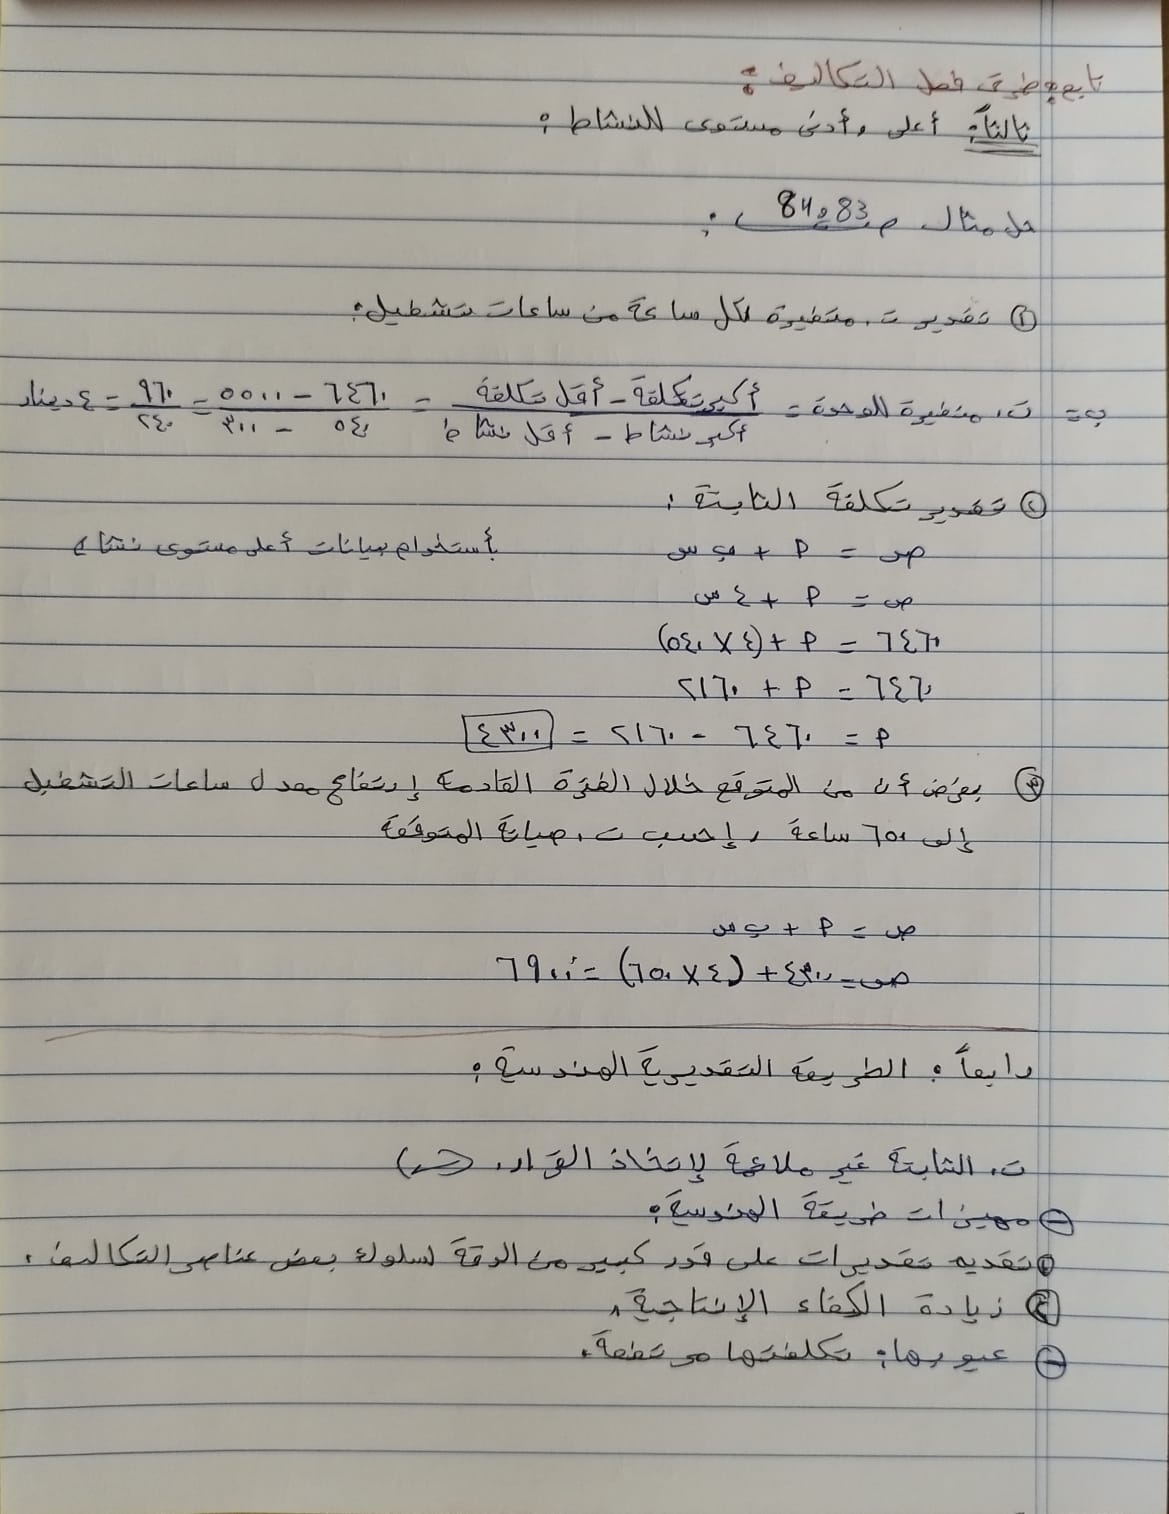 تابع: طرق فصل التكاليف:
ثالثاً: أعلى وأدنى مستوى للنشاط:
حل مثال ص 83 و 84:
① تقدير ت. متغيرة لكل ساعة من ساعات تشغيل:
ب = ت. متغيرة للوحدة = أكبر تكلفة - أقل تكلفة / أكبر نشاط - أقل نشاط = ٦٤٦٠ - ٥٥٠٠ / ٥٤٠ - ٣٠٠ = ٩٦٠ / ٢٤٠ = ٤ دينار
② تقدير تكلفة الثابتة:
ص = م + ب س بأستخدام بيانات أعلى مستوى نشاط
ص = م + ٤ س
٦٤٦٠ = م + (٤ × ٥٤٠)
٦٤٦٠ = م + ٢١٦٠
م = ٦٤٦٠ - ٢١٦٠ = ٤٣٠٠
③ بفرض أن من المتوقع خلال الفترة القادمة إرتفاع معدل ساعات التشغيل
إلى ٦٥٠ ساعة، إحسب ت. صيانة المتوقعة
ص = م + ب س
ص = ٤٣٠٠ + (٤ × ٦٥٠) = ٦٩٠٠
رابعاً: الطريقة التقديرية الهندسية:
ت. الثابتة غير ملائمة لإتخاذ القرار.
- مميزات طريقة الهندسية:
① تقديم تقديرات على قدر كبير من الدقة لسلوك بعض عناصر التكاليف.
② زيادة الكفاء الإنتاجية.
- عيوبها: تكلفتها مرتفعة.